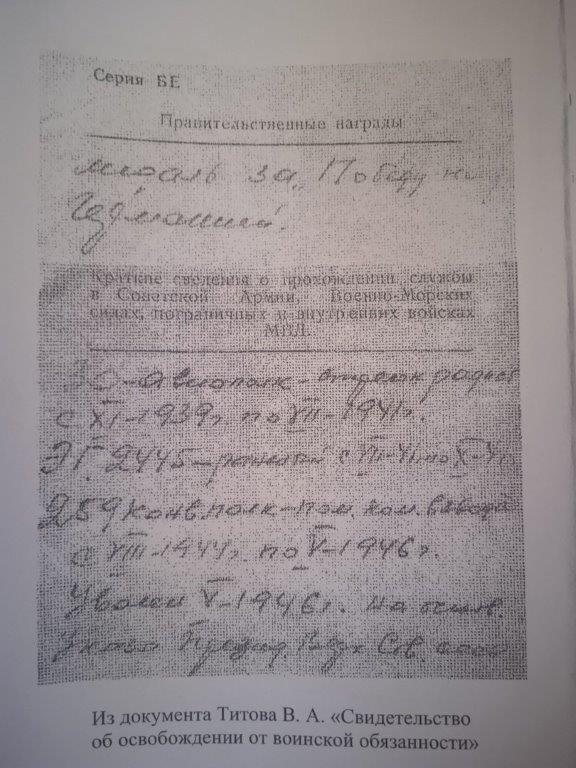 Серия БЕ
Правительственные награды
медаль за „Победу на
Германией.
Краткие сведения о прохождении службы
в Советской Армии, Военно-Морских
силах, пограничных и внутренних войсках
МВД.
авиополк – стрелк радист
с XI-1939г. по VII-1941г.
ЭГ 2445 –
259 конв. полк – пом. ком. взвода
с VIII-1944г. по V-1946г.
Уволен V-1946г. на основ.
Указа Презид. Верх Сов. СССР
Из документа Титова В. А. «Свидетельство
об освобождении от воинской обязанности»